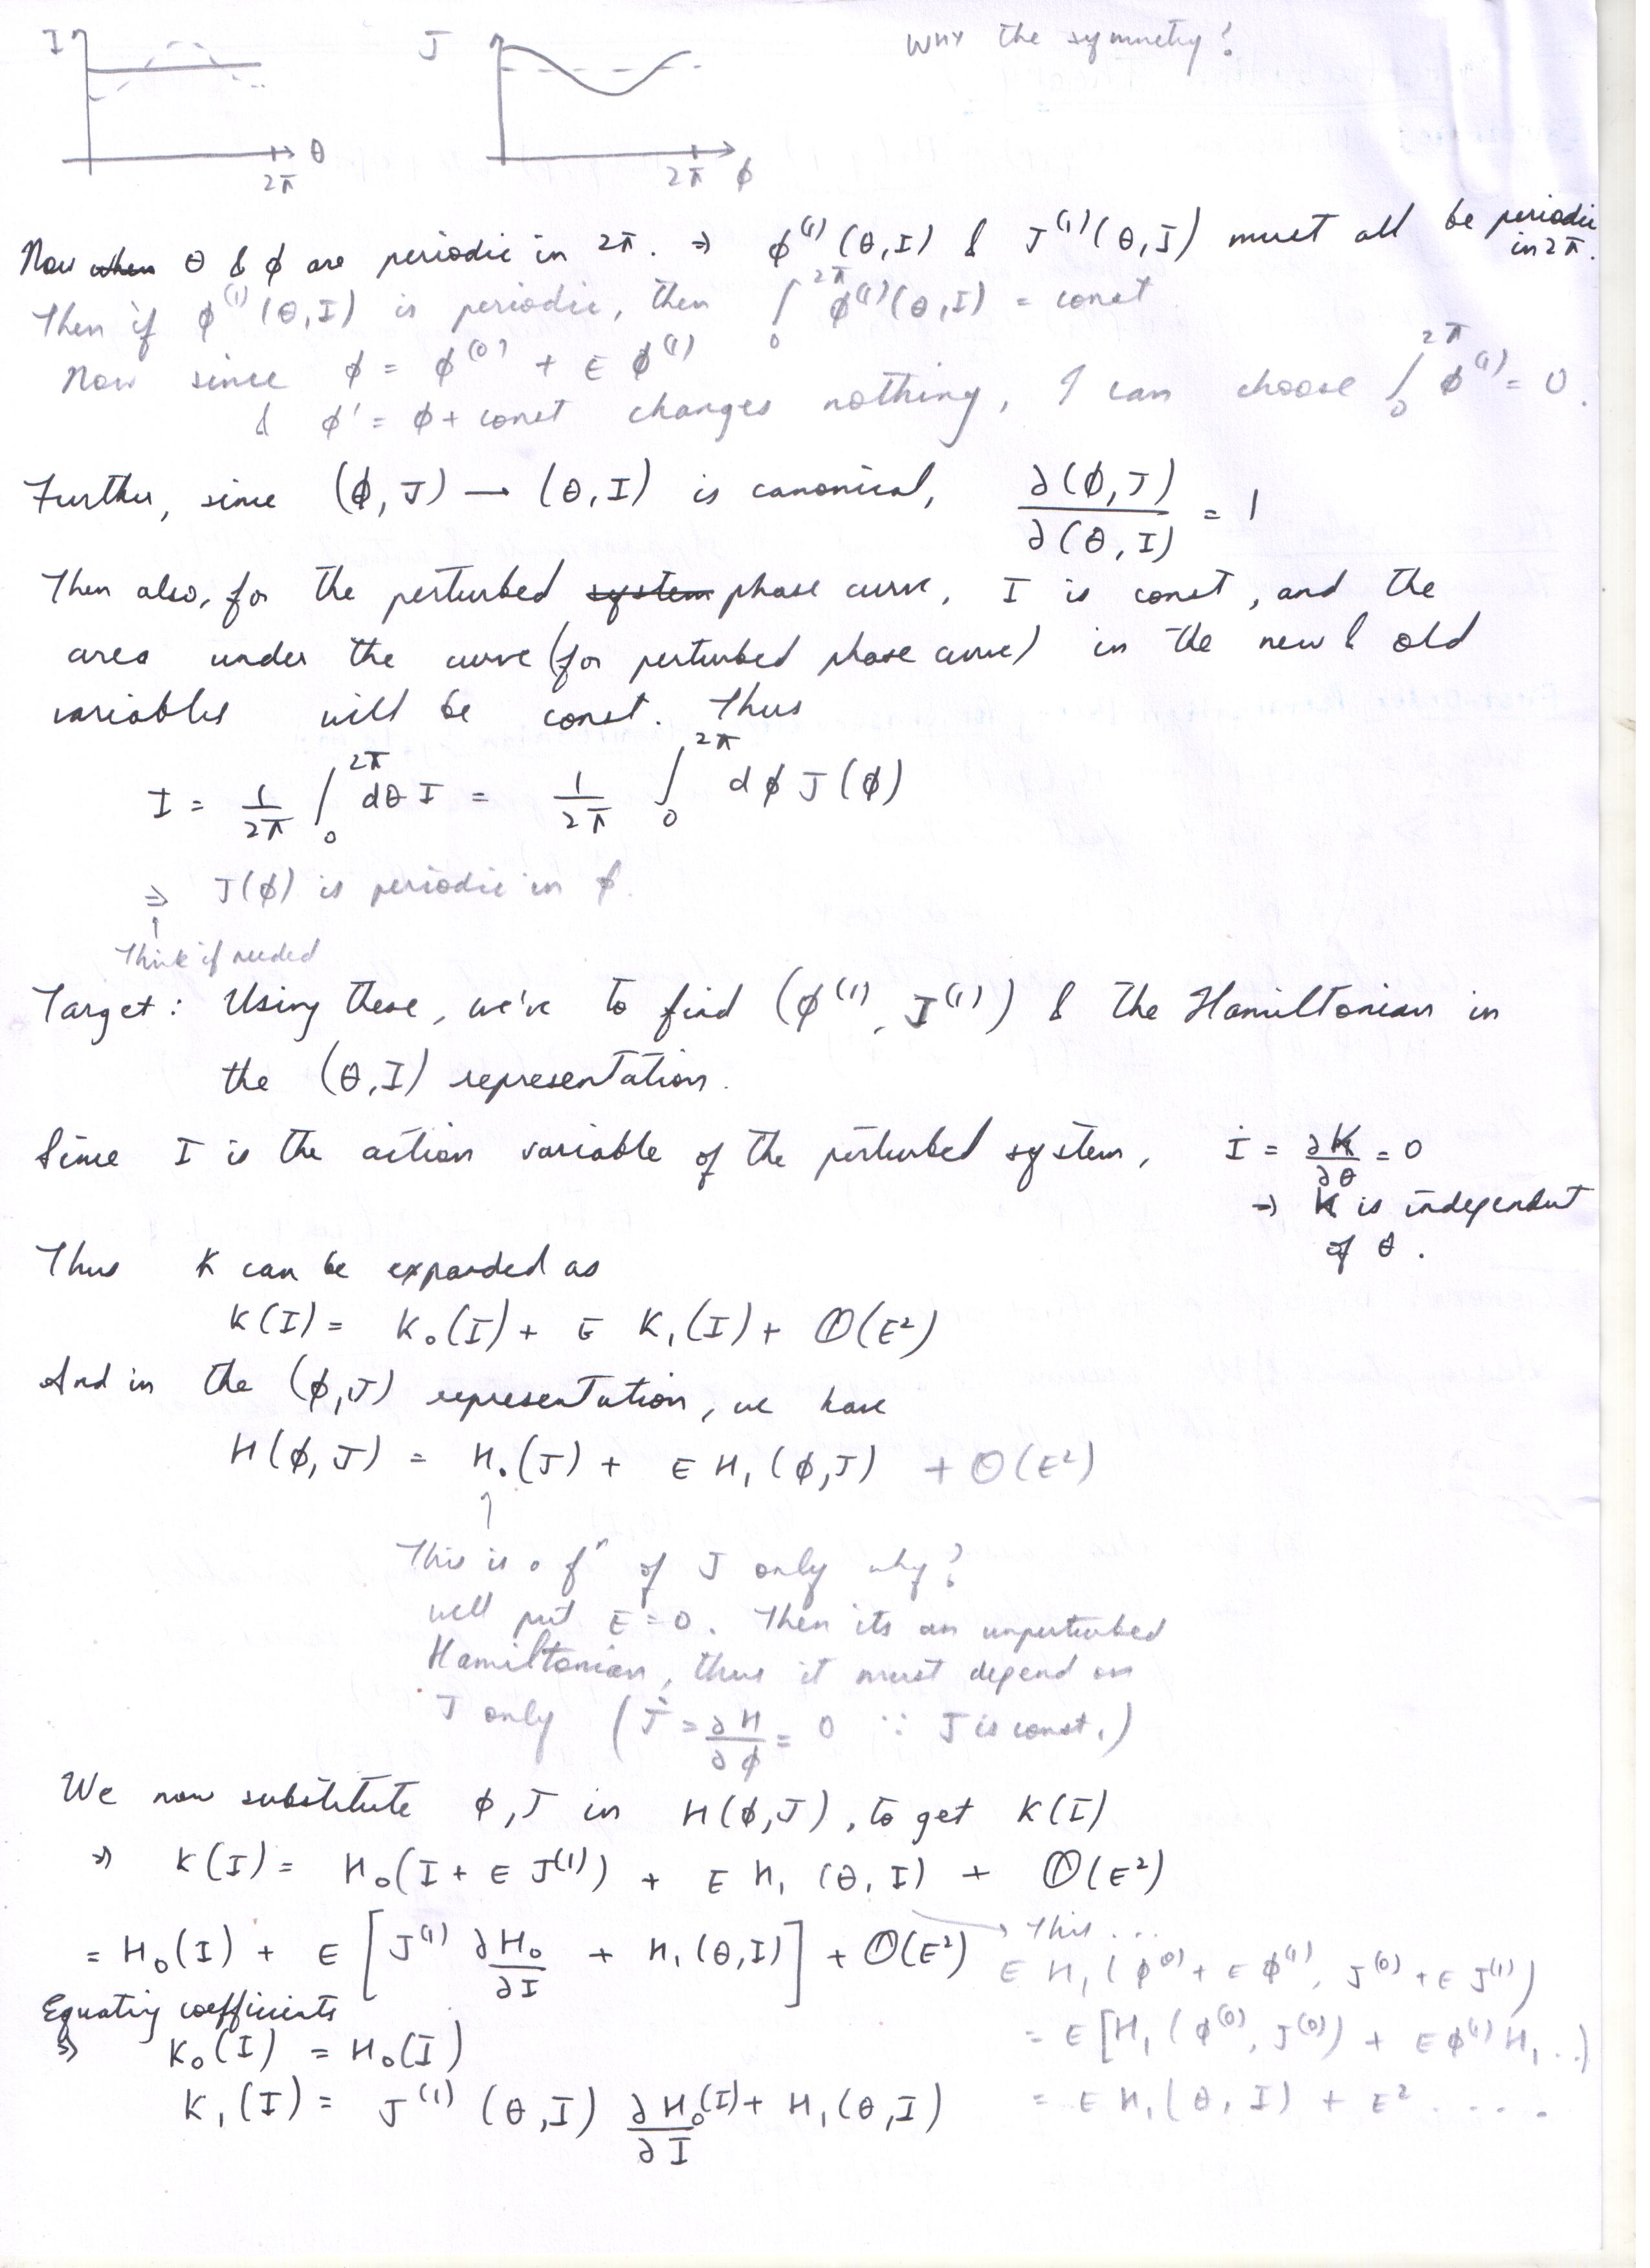 I
θ
2π
J
2π
φ
WHY the symmetry?
Now ~~when~~ θ & φ are periodic in 2π. ⇒ φ⁽¹⁾(θ,I) & J⁽¹⁾(θ,I) must all be periodic in 2π.
Then if φ⁽¹⁾(θ,I) is periodic, then ∫₀^{2π} φ⁽¹⁾(θ,I) = const
Now since φ = φ⁽⁰⁾ + ε φ⁽¹⁾
& φ' = φ + const changes nothing, I can choose ∫₀^{2π} φ⁽¹⁾ = 0.
Further, since (φ,J) → (θ,I) is canonical, ∂(φ,J)/∂(θ,I) = 1
Then also, for the perturbed ~~system~~ phase curve, I is const, and the
area under the curve (for perturbed phase curve) in the new & old
variables will be const. Thus
I = 1/2π ∫₀^{2π} dθ I = 1/2π ∫₀^{2π} dφ J(φ)
⇒ J(φ) is periodic in φ.
↑
Think if needed
Target: Using these, we've to find (φ⁽¹⁾, J⁽¹⁾) & the Hamiltonian in
the (θ,I) representation.
Since I is the action variable of the perturbed system, İ = ∂K/∂θ = 0
⇒ K is independent
of θ.
Thus K can be expanded as
K(I) = K₀(I) + ε K₁(I) + O(ε²)
And in the (φ,J) representation, we have
H(φ,J) = H₀(J) + ε H₁(φ,J) + O(ε²)
↑
This is a fⁿ of J only why?
well put ε=0. Then its an unperturbed
Hamiltonian, thus it must depend on
J only (J̇ = ∂H/∂φ = 0 ∵ J is const.)
We now substitute φ,J in H(φ,J), to get K(I)
⇒ K(I) = H₀(I + ε J⁽¹⁾) + ε H₁(θ,I) + O(ε²)
= H₀(I) + ε [J⁽¹⁾ ∂H₀/∂I + H₁(θ,I)] + O(ε²)
→ This ...
ε H₁(φ⁽⁰⁾ + ε φ⁽¹⁾, J⁽⁰⁾ + ε J⁽¹⁾)
= ε [H₁(φ⁽⁰⁾, J⁽⁰⁾) + ε φ⁽¹⁾ H₁ ..)
= ε H₁(θ,I) + ε² ....
Equating coefficients
⇒ K₀(I) = H₀(I)
K₁(I) = J⁽¹⁾(θ,I) ∂H₀(I)/∂I + H₁(θ,I)